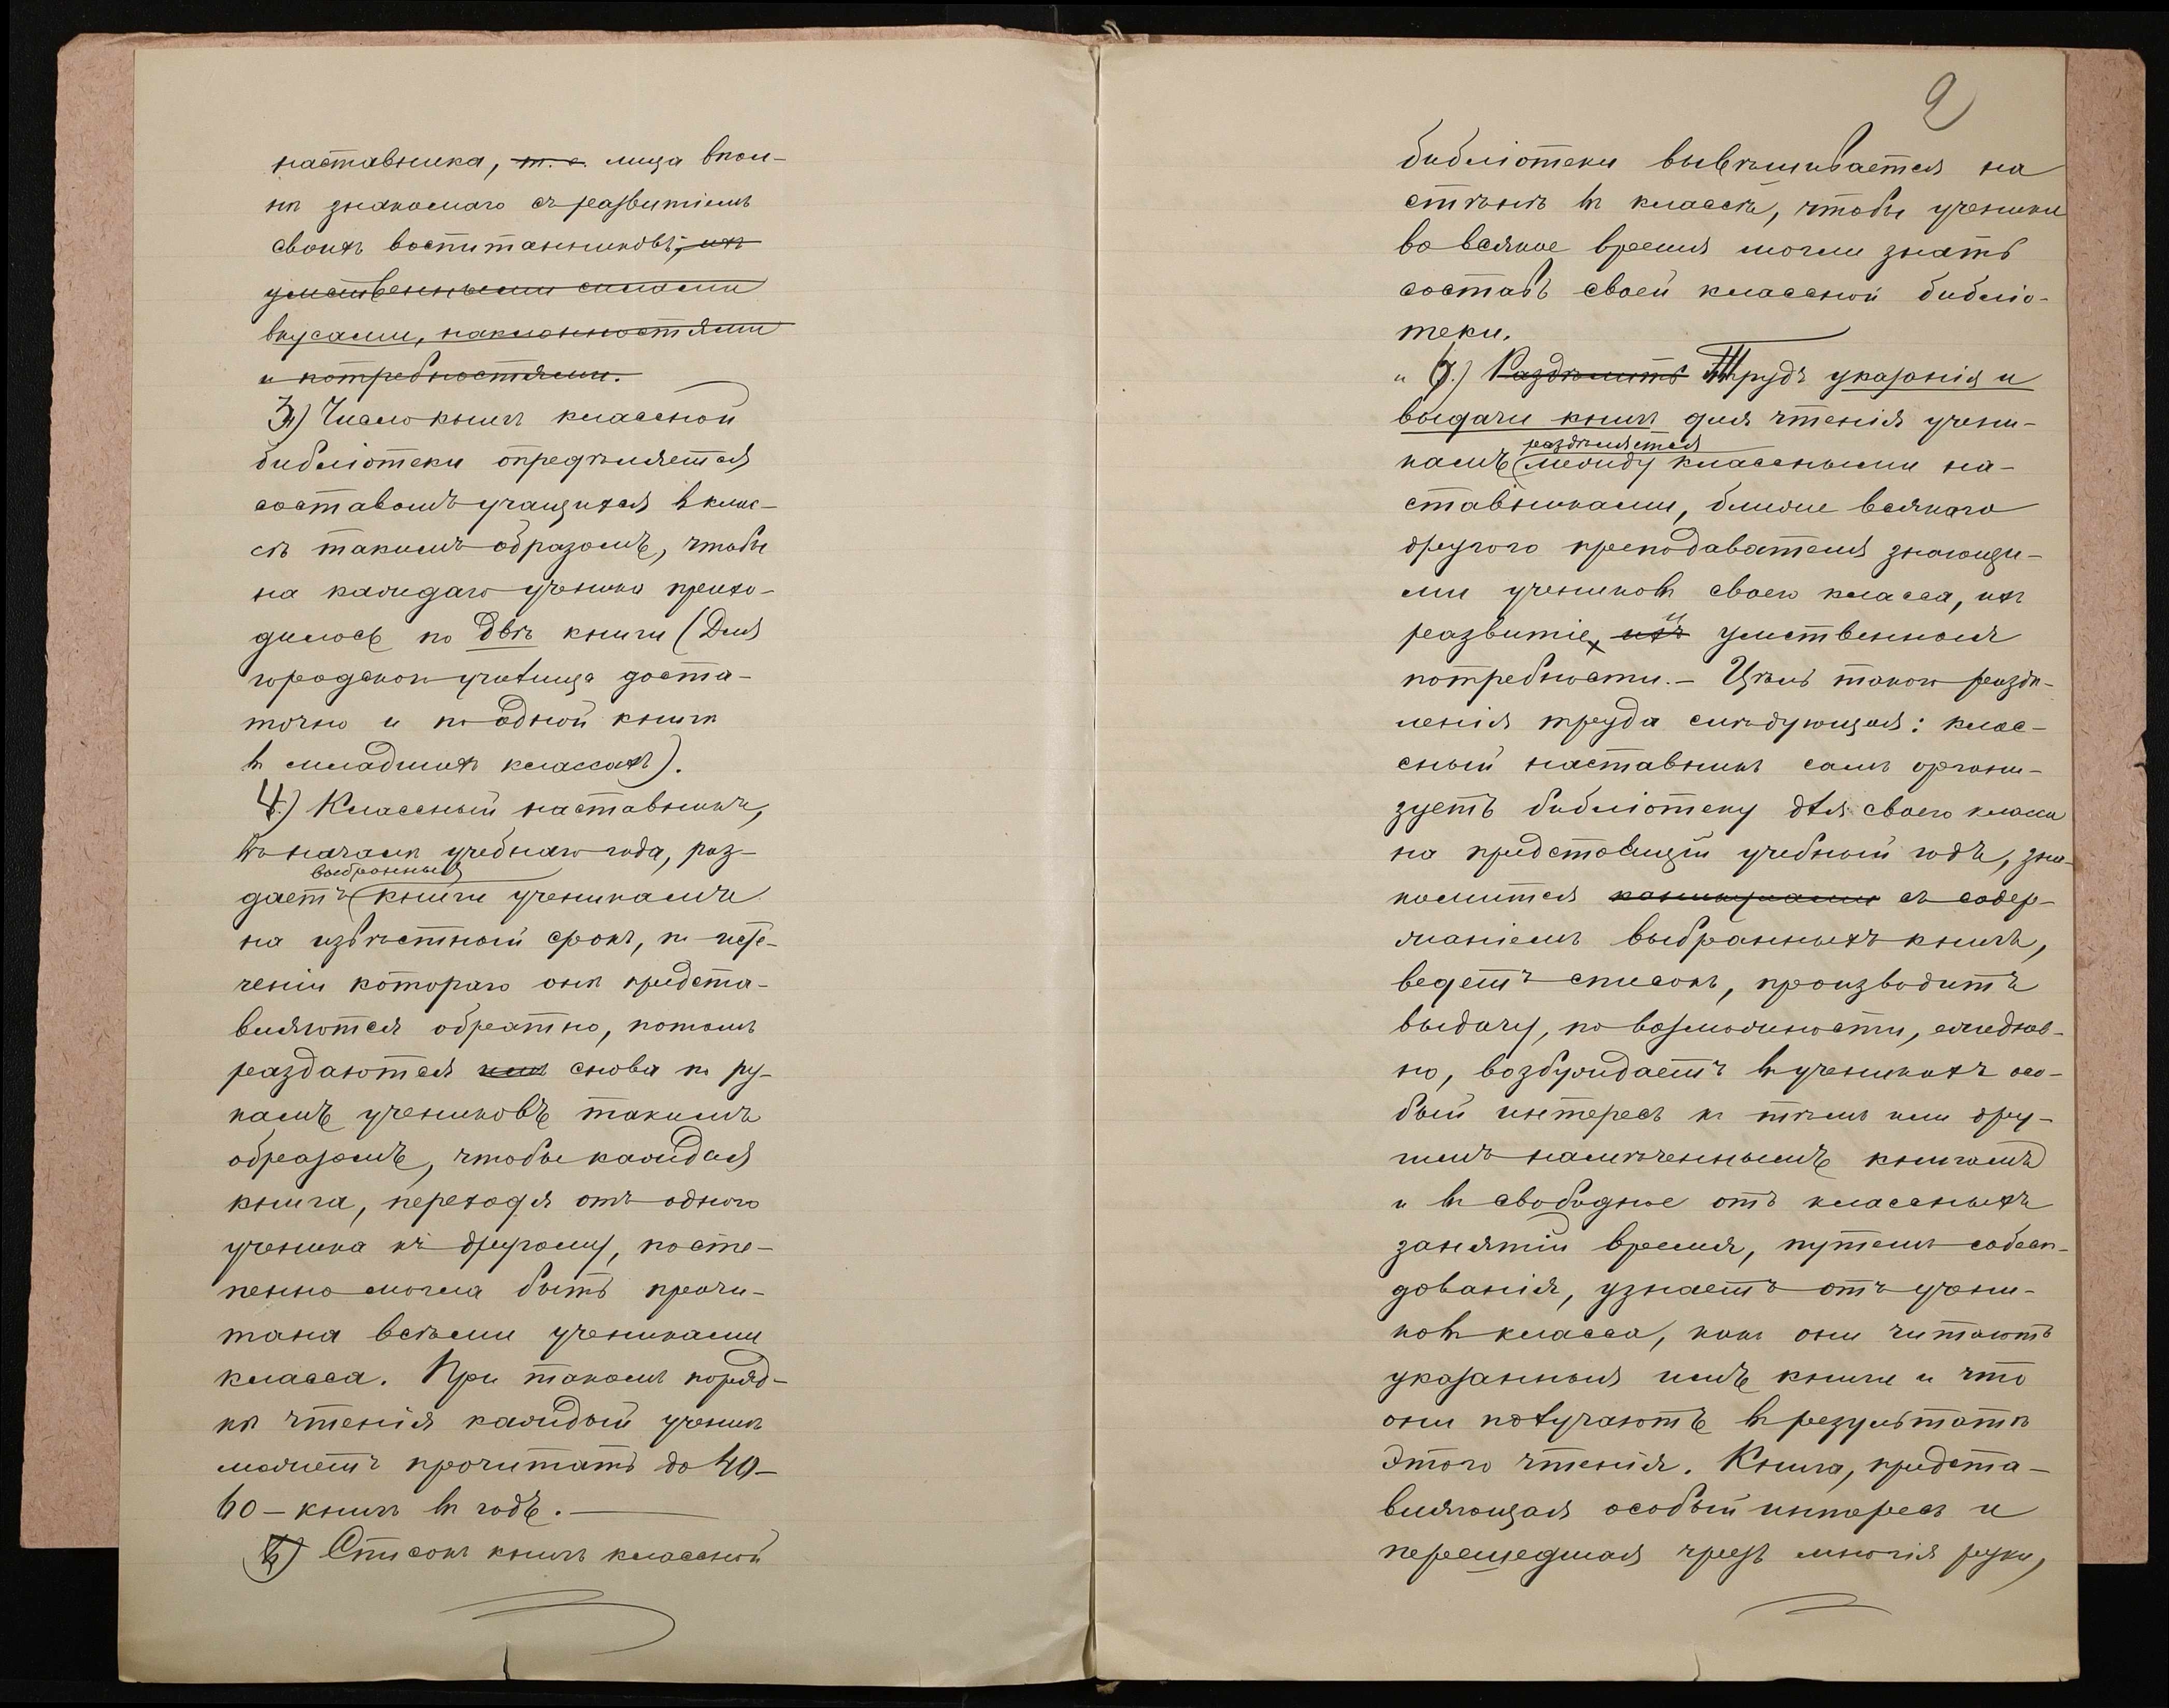 наставника, т. е. лица впол-
нѣ знакомаго съ развитіемъ
своихъ воспитанниковъ, ихъ
умственными силами
вкусами, наклонностями
и потребностями.
3) Число книгъ классной
библіотеки опредѣляется
составомъ учащихся въ клас-
сѣ такимъ образомъ, чтобы
на каждаго ученика прихо-
дилось по двѣ книги (Для
городскою училища доста-
точно и по одной книгѣ
въ младшихъ классахъ).
4) Классный наставникъ,
въ началѣ учебнаго года, раз-
выбранныя
даетъ книги ученикамъ
на извѣстный срокъ, по исте-
ченіи котораго онѣ предста-
вляются обратно, потомъ
раздаются имъ снова по ру-
камъ учениковъ такимъ
образомъ, чтобы каждая
книга, переходя отъ одного
ученика къ другому, посте-
пенно могла быть прочи-
тана всѣми учениками
класса. При такомъ поряд-
кѣ чтенія каждый ученикъ
можетъ прочитать до 40-
60 - книгъ въ годъ.
5) Списокъ книгъ классной
2
библіотеки вывѣшивается на
стѣнѣ въ классѣ, чтобы ученики
во всякое время могли знать
составъ своей классной библіо-
теки.
" 6.) Раздѣлить Трудъ указанія и
выдачи книгъ для чтенія учени-
раздѣляется
камъ между классными на-
ставниками, ближе всякаго
другого преподавателя знающи-
ми учениковъ своего класса, ихъ
и
развитіе, ихъ умственныя
потребности. - Цѣль такого раздѣ-
ленія труда слѣдующая: клас-
сный наставникъ самъ органи-
зуетъ библіотеку для своего класса
на предстоящій учебный годъ, зна-
комится съ содер-
жаніемъ выбранныхъ книгъ,
ведетъ списокъ, производитъ
выдачу, по возможности, ежеднев-
но, возбуждаетъ въ ученикахъ осо-
бый интересъ къ тѣмъ или дру-
гимъ намѣченнымъ книгамъ
и въ свободное отъ классныхъ
занятій время, путемъ собесѣ-
дованія, узнаетъ отъ учени-
ковъ класса, какъ они читаютъ
указанныя имъ книги и что
они получаютъ въ результатѣ
этого чтенія. Книга, предста-
вляющая особый интересъ и
перешедшая чрезъ многія руки,